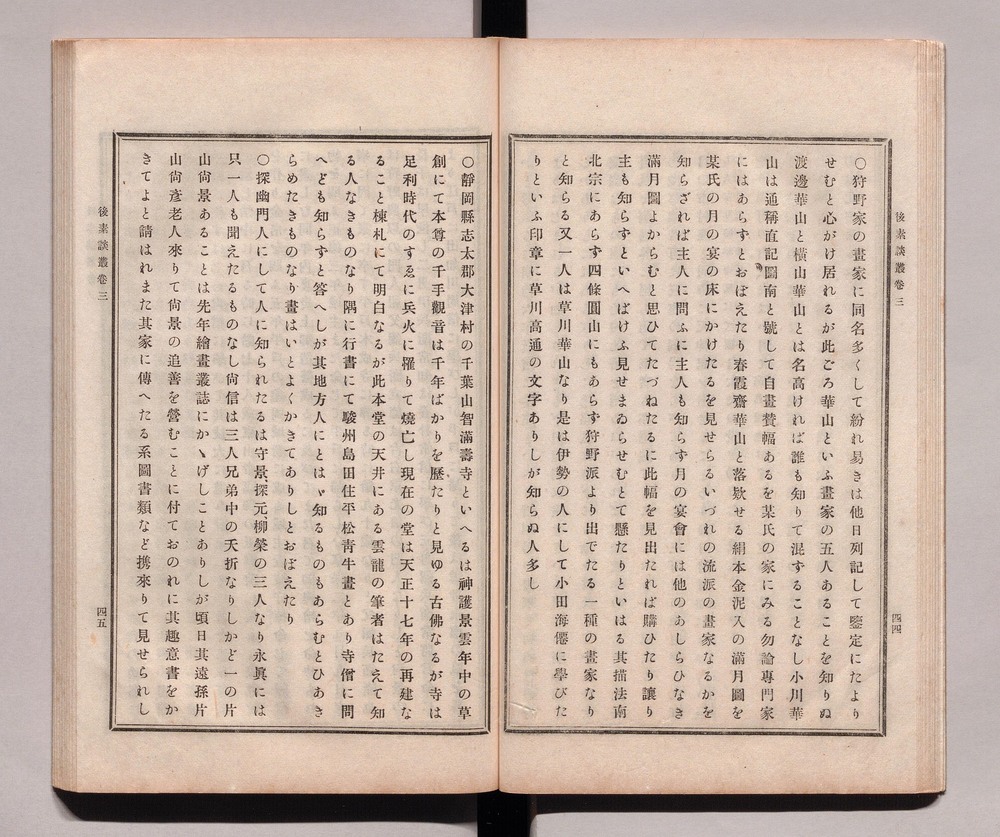 後素談叢卷三
四四
〇狩野家の畫家に同名多くして紛れ易きは他日列記して鑒定にたより
せむと心がけ居れるが此ごろ華山といふ畫家の五人あることを知りぬ
渡邊華山と橫山華山とは名高ければ誰も知りて混することなし小川華
山は通稱直記圖南と號して自畫賛幅あるを某氏の家にみる勿論專門家
にはあらすとおぼえたり春霞齋華山と落欵せる絹本金泥入の滿月圖を
某氏の月の宴の床にかけたるを見せらるいづれの流派の畫家なるかを
知らざれば主人に問ふに主人も知らす月の宴會には他のあしらひなき
滿月圖よからむと思ひてたづねたるに此幅を見出たれば購ひたり讓り
主も知らすといへばけふ見せまゐらせむとて懸たりといはる其描法南
北宗にあらす四條圓山にもあらす狩野派より出でたる一種の畫家なり
と知らる又一人は草川華山なり是は伊勢の人にして小田海僊に學びた
りといふ印章に草川高通の文字ありしが知らぬ人多し
〇靜岡縣志太郡大津村の千葉山智滿壽寺といへるは神護景雲年中の草
創にて本尊の千手觀音は千年ばかりを歷たりと見ゆる古佛なるが寺は
足利時代のすゑに兵火に罹りて燒亡し現在の堂は天正十七年の再建な
ること棟札にて明白なるが此本堂の天井にある雲龍の筆者はたえて知
る人なきものなり隅に行書にて駿州島田住平松靑牛畫とあり寺僧に問
へども知らすと答へしが其地方人にとはゞ知るものもあらむとひあき
らめたきものなり畫はいとよくかきてありしとおぼえたり
〇探幽門人にして人に知られたるは守景、探元柳榮の三人なり永眞には
只一人も聞えたるものなし尙信は三人兄弟中の夭折なりしかど一の片
山尙景あることは先年繪畫叢誌にかゝげしことありしが頃日其遠孫片
山尙彥老人來りて尙景の追善を營むことに付ておのれに其趣意書をか
きてよと請はれまた其家に傳へたる系圖書類など携來りて見せられし
後素談叢卷三
四五